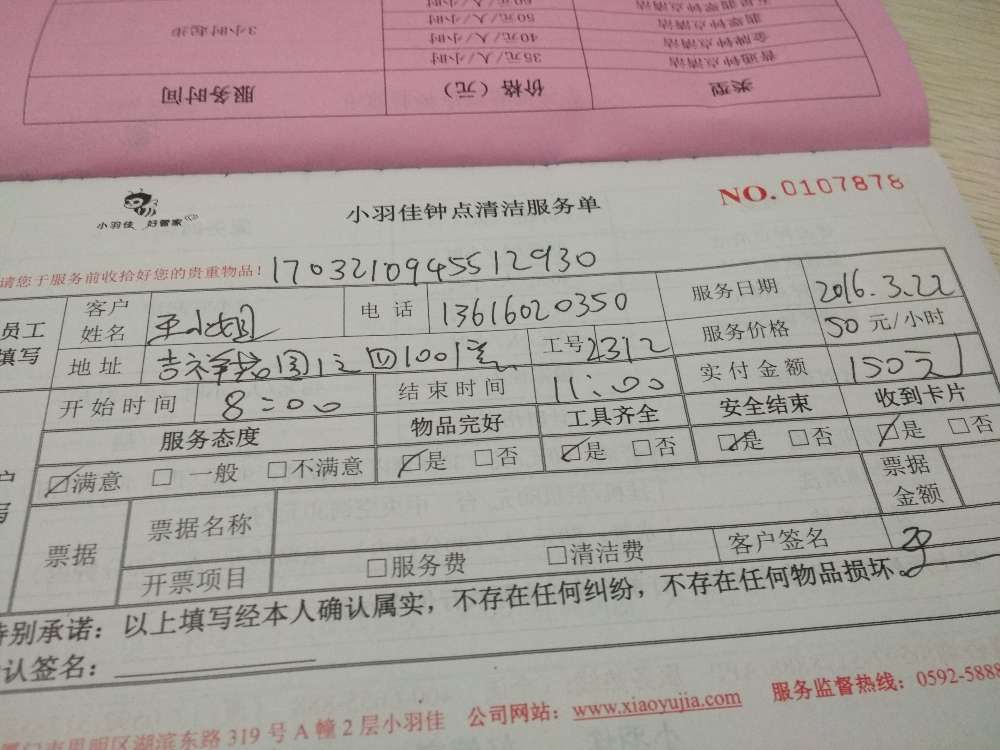 类型 价格（元） 服务时间
普通钟点清洁 35元/人/小时 3小时起步
金牌钟点清洁 40元/人/小时
翡翠钟点清洁 50元/人/小时
60元/人/小时
小羽佳 好管家
小羽佳钟点清洁服务单
NO.0107878
请您于服务前收拾好您的贵重物品！ 1703210945512930
员工填写
客户姓名 王小姐 电话 13616020350 服务日期 2016.3.22
地址 吉祥 园 四1001 工号 2312 服务价格 50元/小时
开始时间 8:00 结束时间 11:00 实付金额 150元
服务态度 物品完好 工具齐全 安全结束 收到卡片
☑满意 □一般 □不满意 ☑是 □否 ☑是 □否 ☑是 □否 ☑是 □否
票据 票据名称 票据金额
开票项目 □服务费 □清洁费 客户签名
特别承诺：以上填写经本人确认属实，不存在任何纠纷，不存在任何物品损坏。
认签名：
思明区湖滨东路319号A幢2层小羽佳 公司网站：www.xiaoyujia.com 服务监督热线：0592-5888